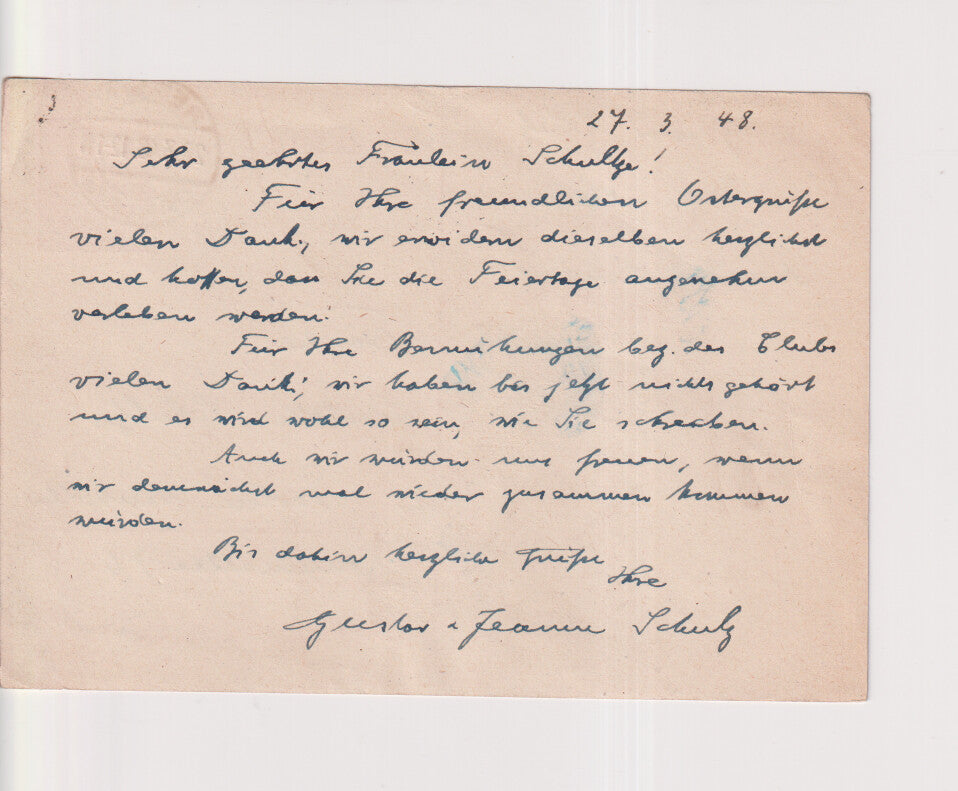 27. 3. 48.
Sehr geehrtes Fräulein Schultze!
Für Ihre freundlichen Ostergrüße
vielen Dank, wir erwidern dieselben herzlichst
und hoffen, dass Sie die Feiertage angenehm
verleben werden.
Für Ihre Bemühungen bez. des Clubs
vielen Dank; wir haben bis jetzt nichts gehört
und es wird wohl so sein, wie Sie schreiben.
Auch wir würden uns freuen, wenn
wir demnächst mal wieder zusammen kommen
würden.
Bis dahin herzliche Grüße
Ihre
Gustav u Jeanne Schulz